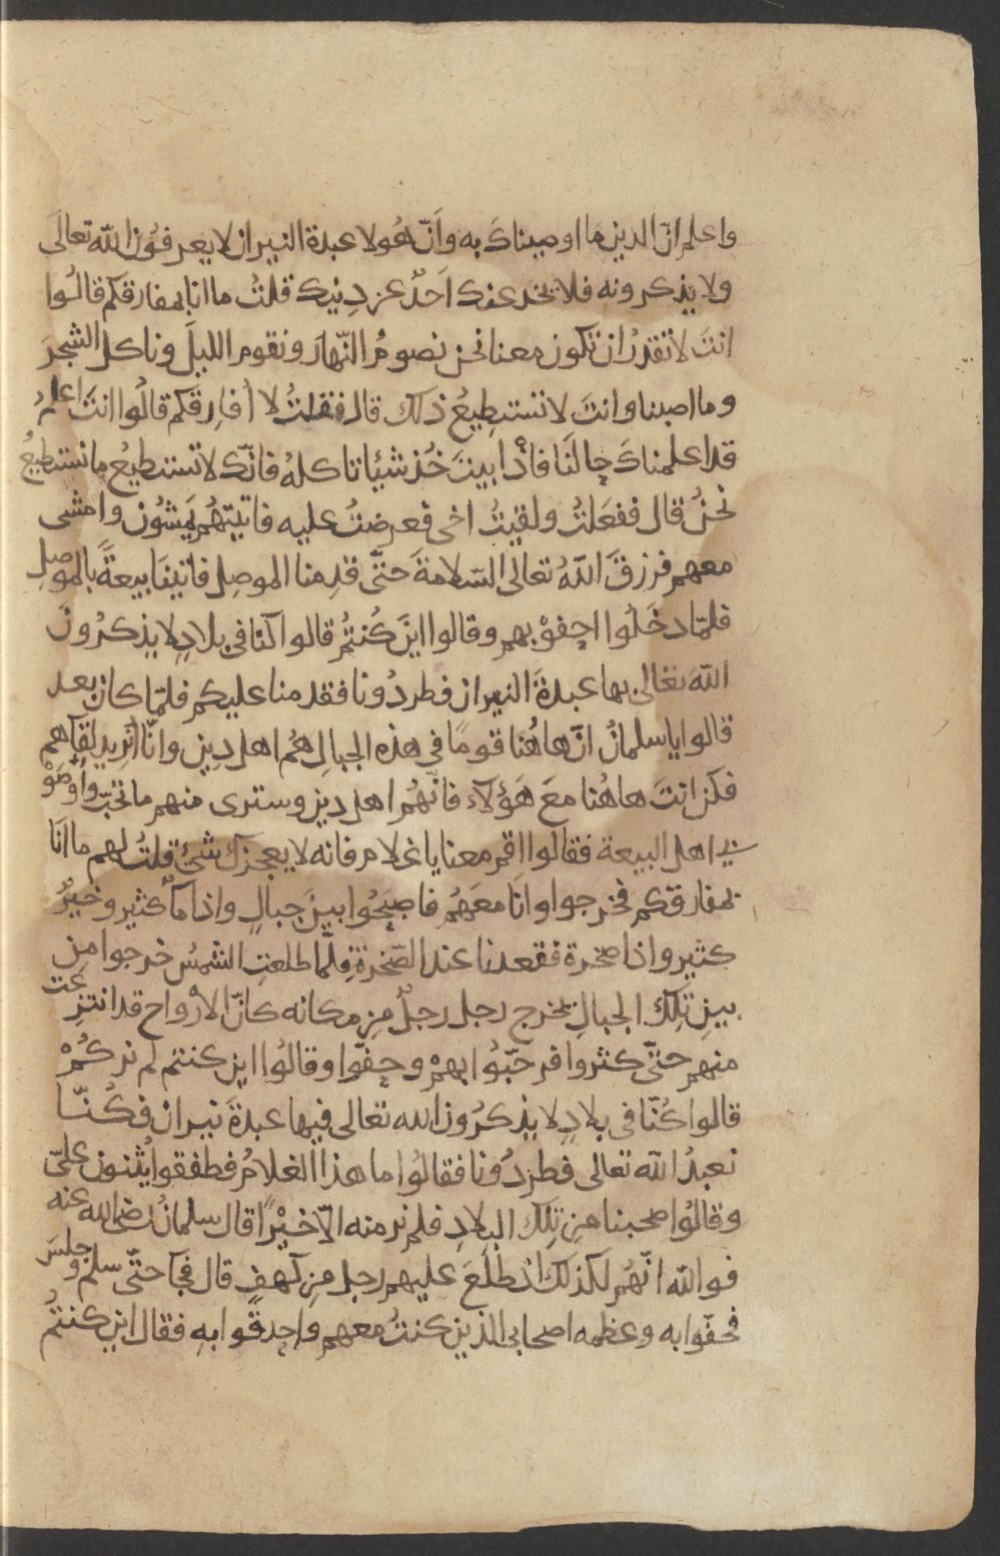 واعلم انّ الدين ما اوصيناكَ به وَانّ هُولا عبدة النيران لا يعرفوُن اللّه تعالَى
ولا يذكرونه فلا يخدعنك اَحَدٌ عن دِينِك قلتُ ما انا بمفارقكم قالُوا
انتَ لا تقدرُ ان تكون معنا نحن نصومُ النّهارَ ونقوم الليلَ وناكل الشجرَ
وما اصبنا وانتَ لا تستطِيعُ ذلك قال فقلتُ لا أفارِقكم قالُوا انتَ اعلمُ
قد اعلمناكَ حالنَا فاذا ابيتَ خُذ شيئا تاكلهُ فانّك لا تستطيعُ ما نستطيعُ
نحنُ قال ففعَلتُ ولقيتُ اخى فعرضتُ عليه فاتيتهُم يمشُون وامشى
معهم فرزقَ اللّهُ تعالى السّلامةَ حتّى قدِمنا الموصِل فاتينا بيعةً بالموصِل
فلمّا دخَلُوا احِفوْ بهم وقالوا اينَ كُنتُم قالوا كنا فى بلادٍ لا يذكرُونَ
اللّهَ تعَالى بها عبدةَ النيران فطردُونا فقدمنا عليكم فلمّا كان بعد
قالوا يا سلمانُ انّ هاهُنا قومًا فى هذه الجبالِ هُم اهل دِينٍ وانّا نُريد لِقآهم
فكن انتَ هاهُنا معَ هَؤلآء فانّهُم اهل دينٍ وسترى منهم ما تحبّ واَوصَوْ
بى اهل البيعة فقالوا اقم معنا يا غلام فانه لا يعجزك شئٌ قلتُ لهم ما انَا
بمفارقكم فخرجوا وانَا معَهُم فاصبَحُوا بينَ جبالٍ واذا مآٌ كثيرٌ وخيرٌ
كثير واذا صخرة فقعدنا عند الصّخرةِ فلمّا طلعتِ الشمسُ خرجوا مِن
بينِ تِلكَ الجبالِ يخرج رجل رجلٌ مِن مكانه كانّ الأرواح قد انتزِعَت
منهم حتّى كثروا فرحّبُوا بهمْ وحفّوا وقالُوا اين كنتم لم نركُمْ
قالوا كُنّا فى بلادٍ لا يذكرُون الله تعالى فيها عبدةَ نيران فكُنّا
نعبدُ اللّه تعالى فطردُونا فقالُوا ما هذا الغلامُ فطفقوا يُثنون علىّ
وقالُوا صحبنا مِن تِلكَ البلادِ فلم نر منه الّا خيْرًا قال سلمانُ رضى الله عنه
فوالله انّهُم لَكذلك اذ طلَعَ عليهم رجل مِن كهفٍ قال فجآ حتّى سلّم وجلسَ
فحفّوا به وعظمه اصحابى الذين كنتُ معهم واحدقُوا به فقال اين كنتُم